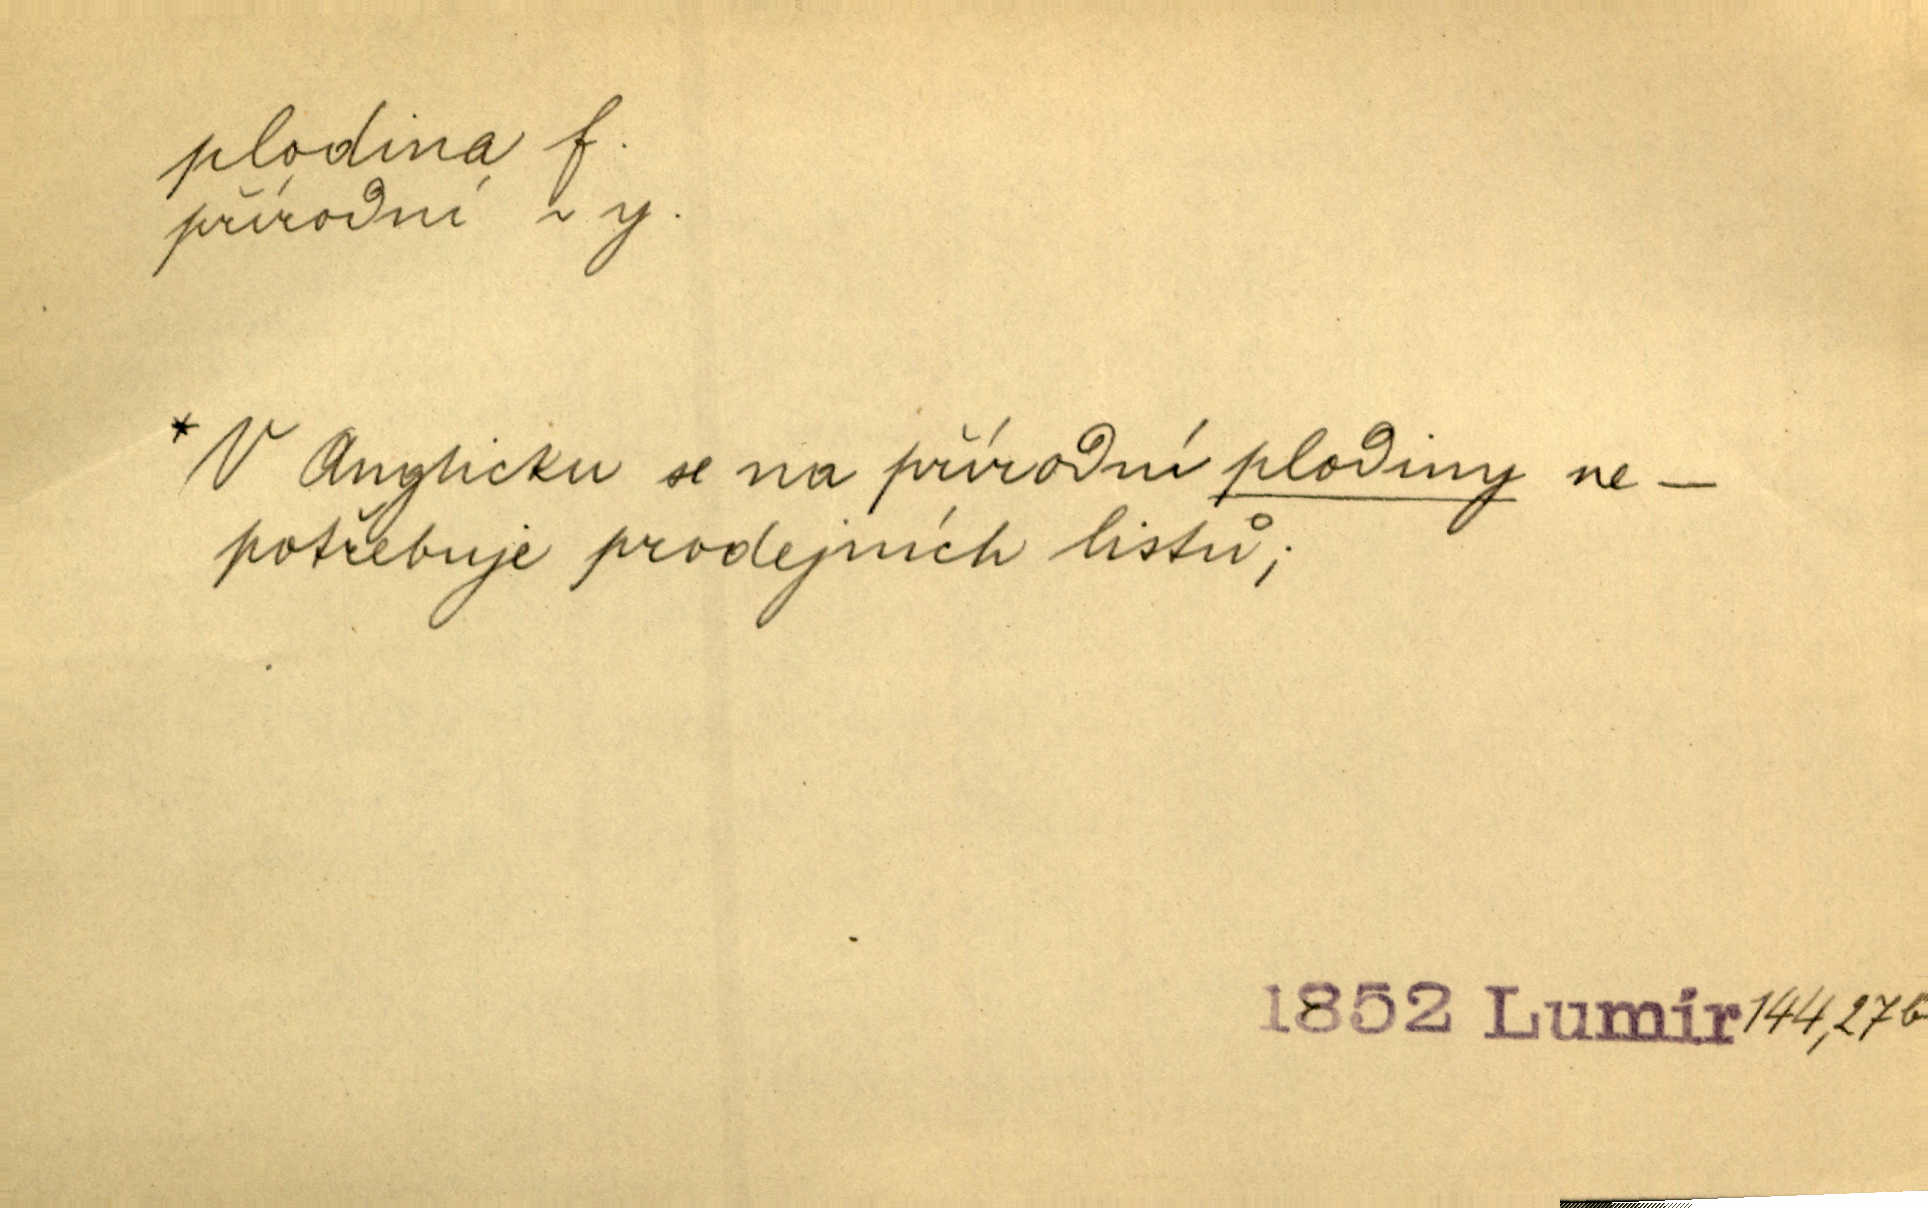 plodina f.
přírodní ~ y.
* V Anglicku se na přírodní plodiny ne –
potřebuje prodejních listů;
1852 Lumír 144,276